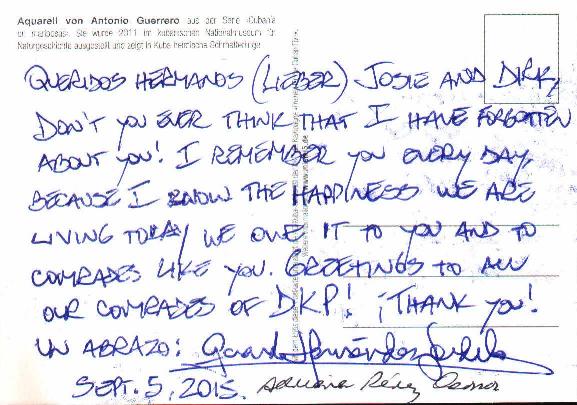 Aquarell von Antonio Guerrero aus der Serie »Cubanía
en mariposas«. Sie wurde 2011 im kubanischen Nationalmuseum für
Naturgeschichte ausgestellt und zeigt in Kuba heimische Schmetterlinge
QUERIDOS HERMANOS (LIEBER) JOSIE AND DIRK,
DON'T YOU EVER THINK THAT I HAVE FORGOTTEN
ABOUT YOU! I REMEMBER YOU EVERY DAY,
BECAUSE I KNOW THE HAPPINESS WE ARE
LIVING TODAY WE OWE IT TO YOU AND TO
COMRADES LIKE YOU. GREETINGS TO ALL
OUR COMRADES OF DKP! ¡THANK YOU!
UN ABRAZO: Gerardo Hernández Nordelo
SEPT. 5, 2015. Adriana Pérez